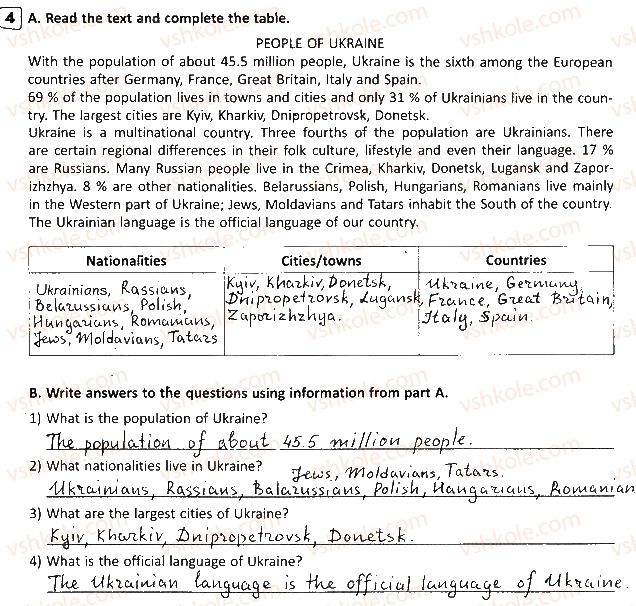 4 A. Read the text and complete the table.
PEOPLE OF UKRAINE
With the population of about 45.5 million people, Ukraine is the sixth among the European
countries after Germany, France, Great Britain, Italy and Spain.
69 % of the population lives in towns and cities and only 31 % of Ukrainians live in the coun-
try. The largest cities are Kyiv, Kharkiv, Dnipropetrovsk, Donetsk.
Ukraine is a multinational country. Three fourths of the population are Ukrainians. There
are certain regional differences in their folk culture, lifestyle and even their language. 17 %
are Russians. Many Russian people live in the Crimea, Kharkiv, Donetsk, Lugansk and Zapor-
izhzhya. 8 % are other nationalities. Belarussians, Polish, Hungarians, Romanians live mainly
in the Western part of Ukraine; Jews, Moldavians and Tatars inhabit the South of the country.
The Ukrainian language is the official language of our country.
Nationalities Cities/towns Countries
Ukrainians, Rassians,
Belarussians, Polish,
Hungarians, Romanians,
Jews, Moldavians, Tatars
Kyiv, Kharkiv, Donetsk,
Dnipropetrovsk, Lugansk,
Zaporizhzhya.
Ukraine, Germany,
France, Great Britain,
Italy, Spain.
B. Write answers to the questions using information from part A.
1) What is the population of Ukraine?
The population of about 45.5 million people.
2) What nationalities live in Ukraine? Jews, Moldavians, Tatars.
Ukrainians, Rassians, Balarussians, Polish, Hangarians, Romanian
3) What are the largest cities of Ukraine?
Kyiv, Kharkiv, Dnipropetrovsk, Donetsk.
4) What is the official language of Ukraine?
The Ukrainian language is the official language of Ukraine.
vshkole.com